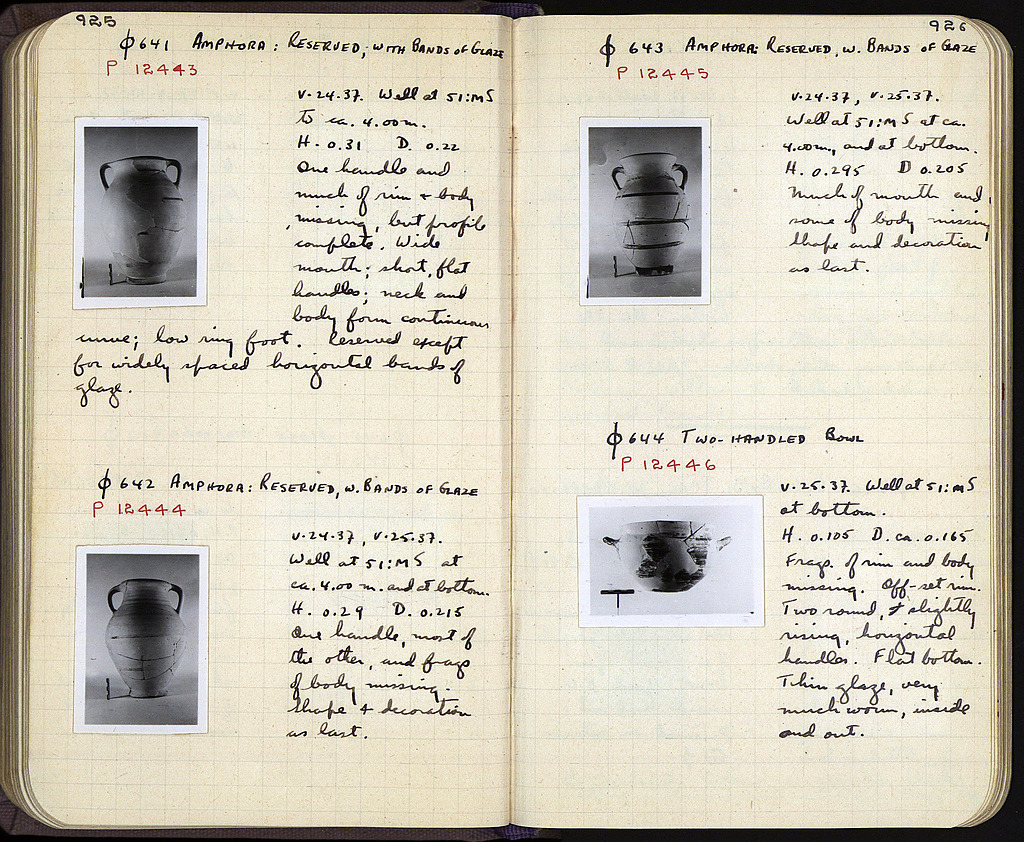 925
φ 641 AMPHORA: RESERVED, WITH BANDS OF GLAZE
P 12443
V.24.37. Well at 51:MS
to ca. 4.00m.
H. 0.31 D. 0.22
One handle and
much of rim + body
missing, but profile
complete. Wide
mouth; short, flat
handles; neck and
body form continuous
curve; low ring foot. Reserved except
for widely spaced horizontal bands of
glaze.
φ 642 AMPHORA: RESERVED, W. BANDS OF GLAZE
P 12444
V.24.37, V.25.37.
Well at 51:MS at
ca. 4.00 m. and at bottom.
H. 0.29 D. 0.215
One handle, most of
the other, and frags
of body missing.
Shape + decoration
as last.
926
φ 643 AMPHORA: RESERVED, W. BANDS OF GLAZE
P 12445
V.24.37, V.25.37.
Well at 51:MS at ca.
4.00m, and at bottom.
H. 0.295 D 0.205
Much of mouth and
some of body missing
Shape and decoration
as last.
φ 644 TWO-HANDLED BOWL
P 12446
V.25.37. Well at 51:MS
at bottom.
H. 0.105 D. ca. 0.165
Frags. of rim and body
missing. Off-set rim.
Two round, slightly
rising, horizontal
handles. Flat bottom.
Thin glaze, very
much worn, inside
and out.